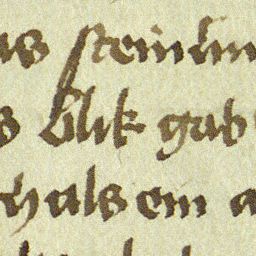 as steinlin
s blik gab
hals ein a